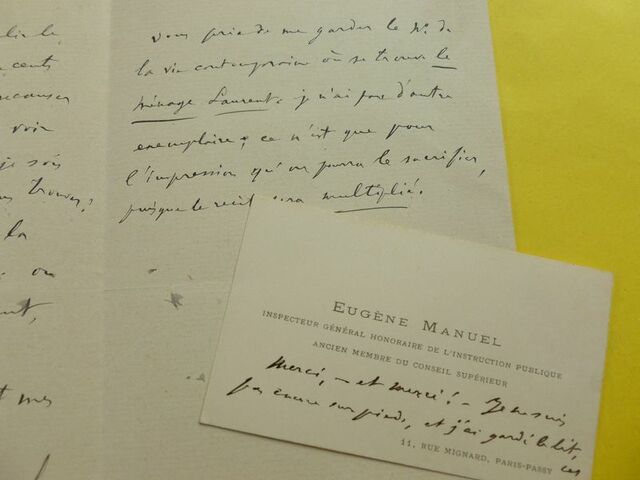 cents
voir
je suis
trouver?
la
ou
vous prie de me garder le No. de
la vie contemporaine où se trouve le
ménage Laurent. je n'ai pas d'autre
exemplaire; ce n'est que pour
l'impression qu'on pourra le sacrifier,
puisque le récit sera multiplié.
EUGÈNE MANUEL
INSPECTEUR GÉNÉRAL HONORAIRE DE L'INSTRUCTION PUBLIQUE
ANCIEN MEMBRE DU CONSEIL SUPÉRIEUR
Merci, – et merci! – Je ne suis
pas encore sur pieds, et j'ai gardé le lit, ces
11, RUE MIGNARD, PARIS-PASSY